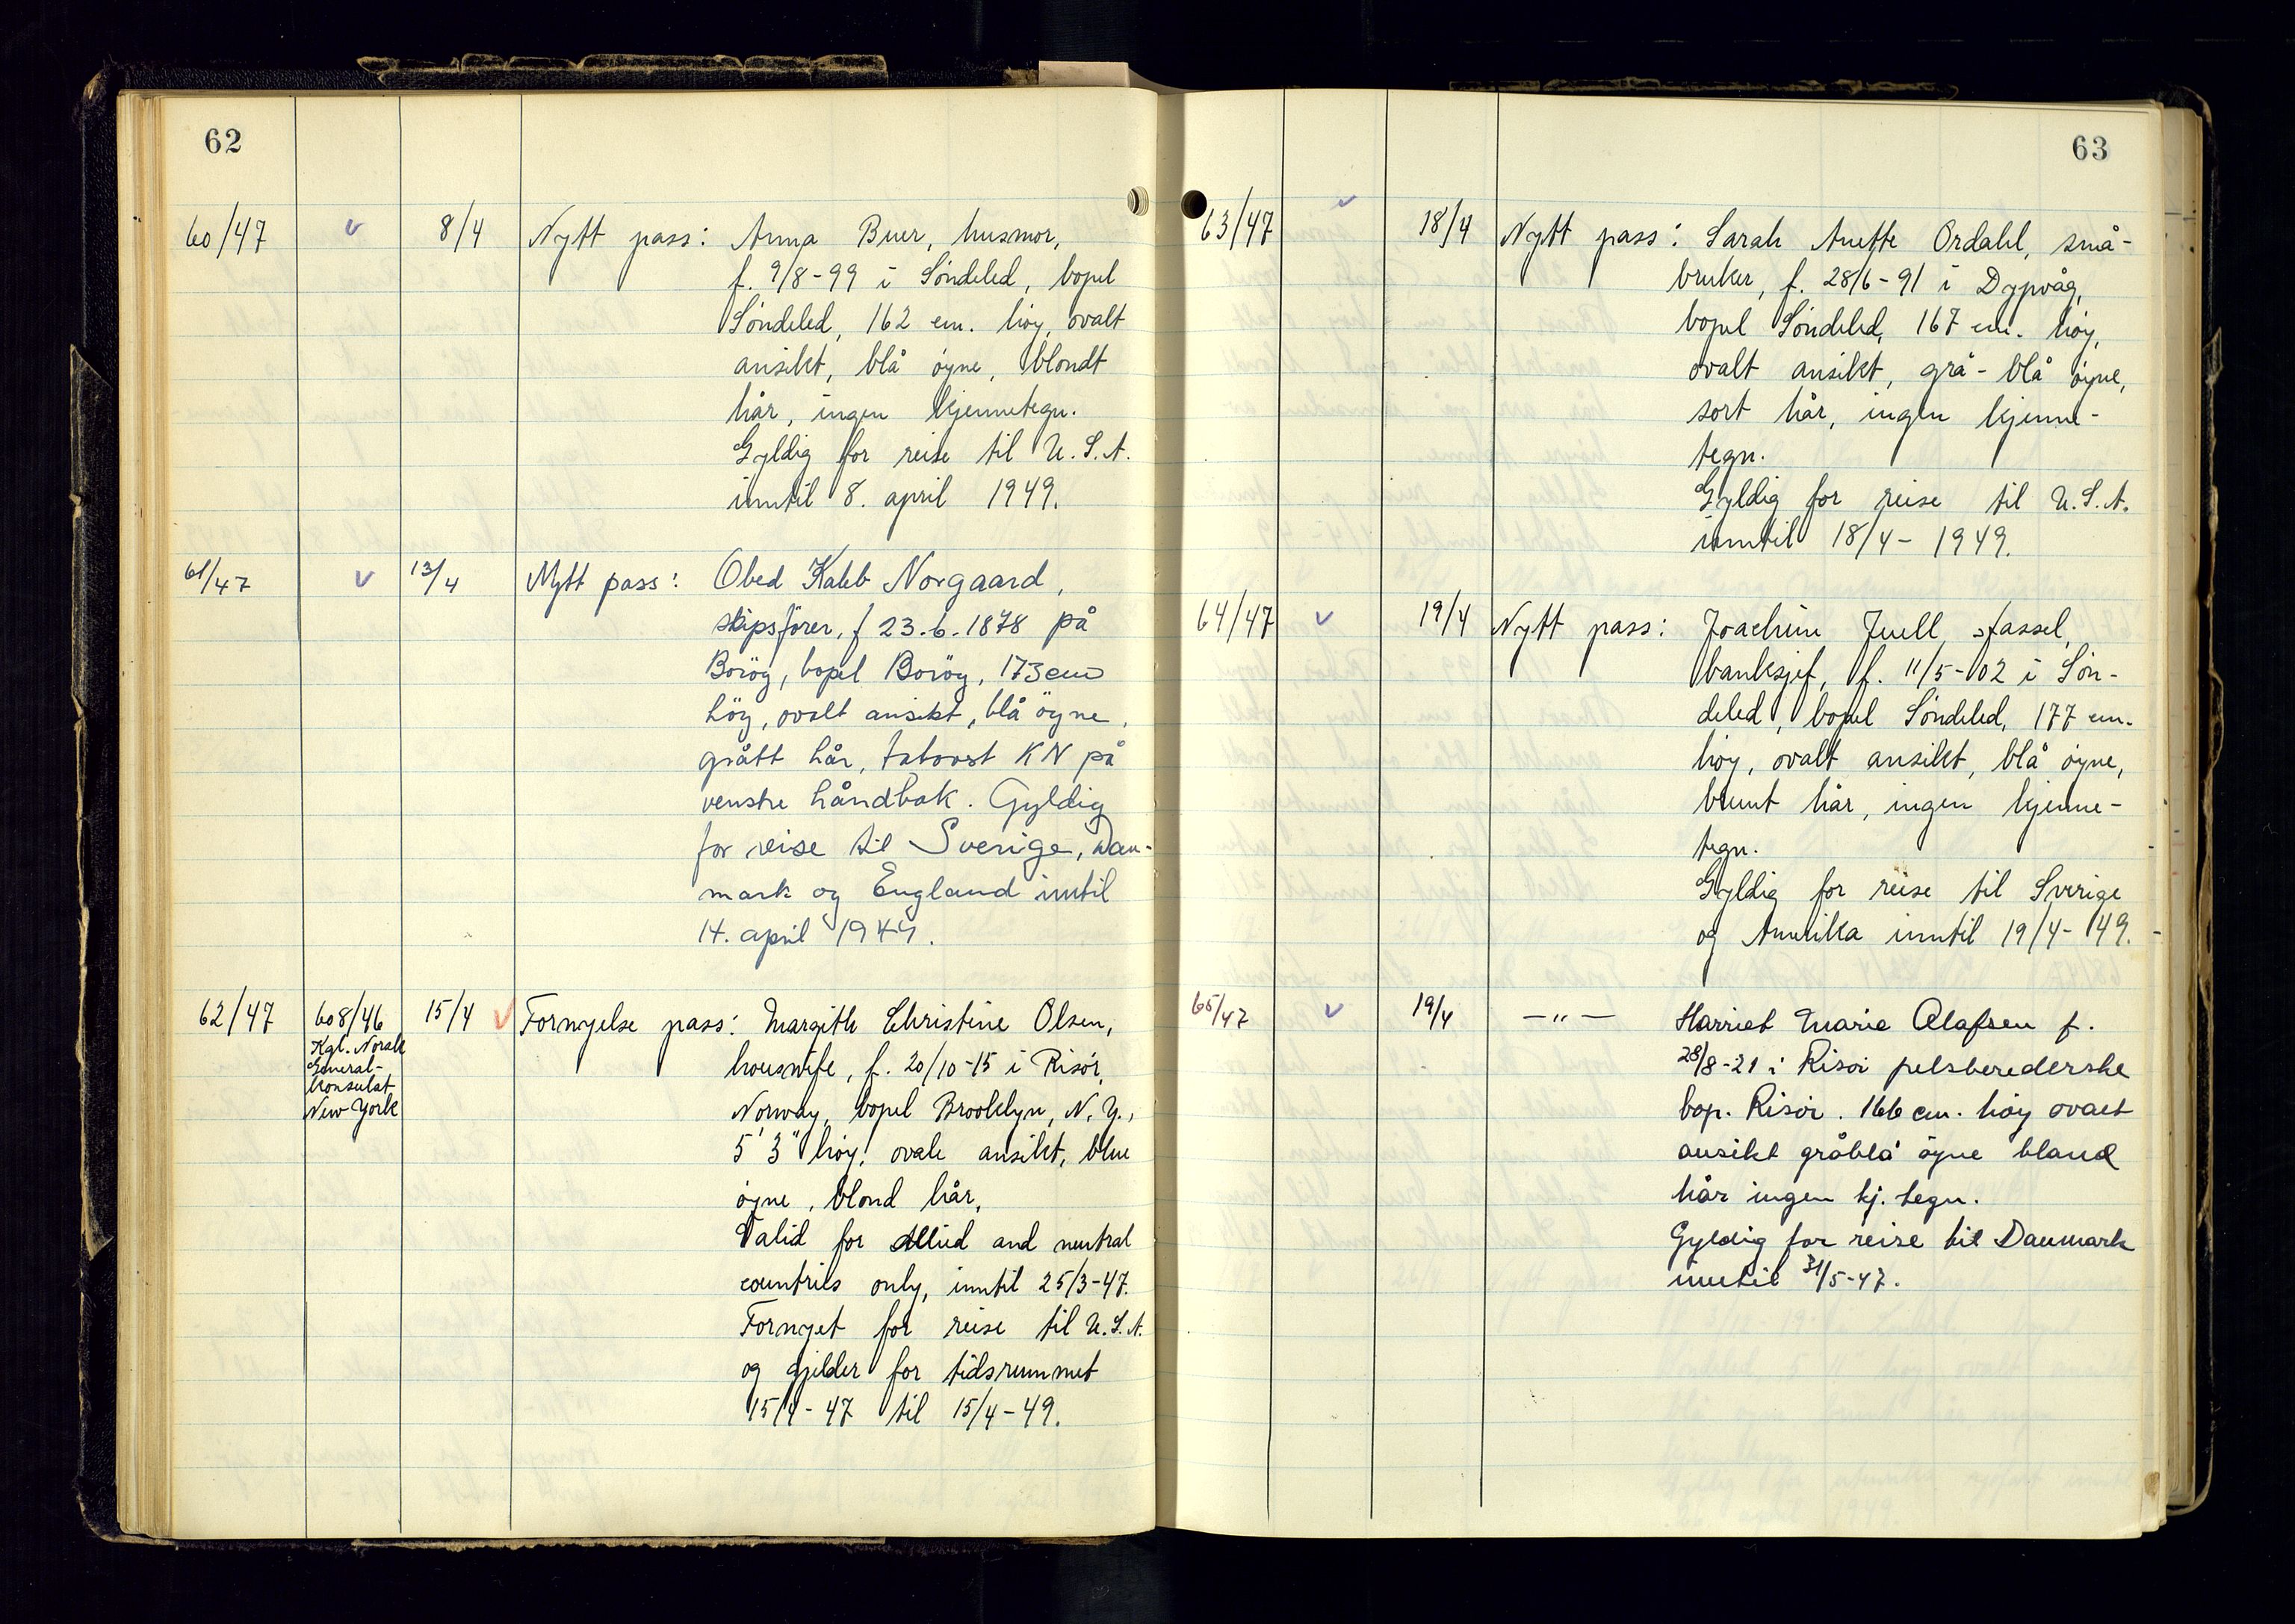 62
60/47 v 8/4 Nytt pass: Anna Buer, husmor,
f. 9/8-99 i Söndeled, bopel
Söndeled, 162 cm. höy, ovalt
ansikt, blå öyne, blondt
hår, ingen kjennetegn.
Gyldig for reise til U.S.A.
inntil 8. april 1949.
61/47 v 13/4 Nytt pass: Obed Kaleb Norgaard,
skipsförer, f 23.6.1878 på
Boröy, bopel Boröy, 173 cm
höy, ovalt ansikt, blå öyne,
grått hår, tatovert KN på
venstre håndbak. Gyldig
for reise til Sverige, Dan-
mark og England inntil
14. april 1949.
62/47 608/46 15/4 v Fornyelse pass: Margith Christine Olsen,
Kgl. Norsk
General-
konsulat
New York
houswife, f. 20/10-15 i Risör,
Norway, bopel Brooklyn, N.Y.,
5' 3" höy, ovale ansikt, blue
öyne, blond hår,
Valid for Allied and neutral
countries only, inntil 25/3-47.
Fornyet for reise til U.S.A.
og gjelder for tidsrummet
15/4-47 til 15/4-49.
63
63/47 v 18/4 Nytt pass: Sarah Anette Ordahl, små-
bruker, f. 28/6-91 i Dypvåg,
bopel Söndeled, 167 cm. höy,
ovalt ansikt, grå-blå öyne,
sort hår, ingen kjenne-
tegn.
Gyldig for reise til U.S.A.
inntil 18/4-1949.
64/47 v 19/4 Nytt pass: Joachim Juell
banksjef, f. 11/5-02 i Sön-
deled, bopel Söndeled, 177 cm.
höy, ovalt ansikt, blå öyne,
brunt hår, ingen kjenne-
tegn.
Gyldig for reise til Sverige
og Amerika inntil 19/4-49.
65/47 v 19/4 -"- Harriet Marie Olafsen f.
28/8-21 i Risör pelsberederske
bop. Risör. 166 cm. höy ovalt
ansikt gråblå öyne bland
hår ingen kj. tegn.
Gyldig for reise til Danmark
inntil 31/5-47.